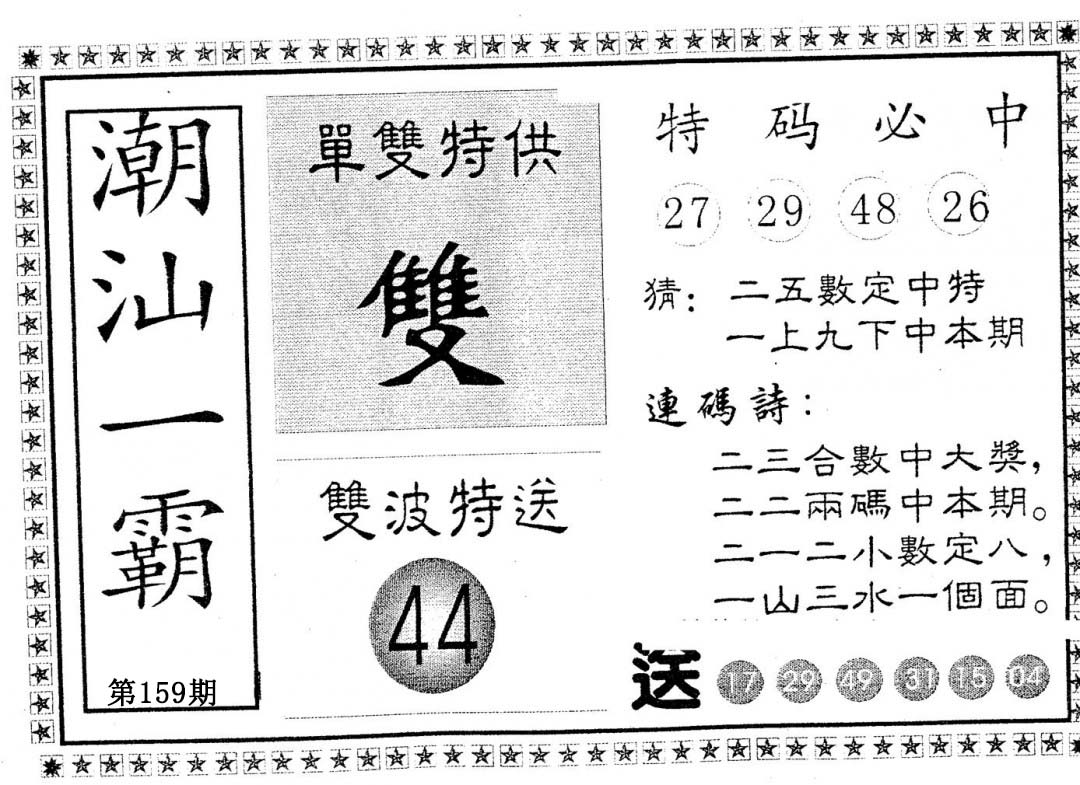 潮汕一霸
第159期
單雙特供
雙
雙波特送
44
特码必中
27 29 48 26
猜：二五數定中特
一上九下中本期
連碼詩：
二三合數中大獎，
二二兩碼中本期。
二一二小數定八，
一山三水一個面。
送 17 29 49 31 15 04